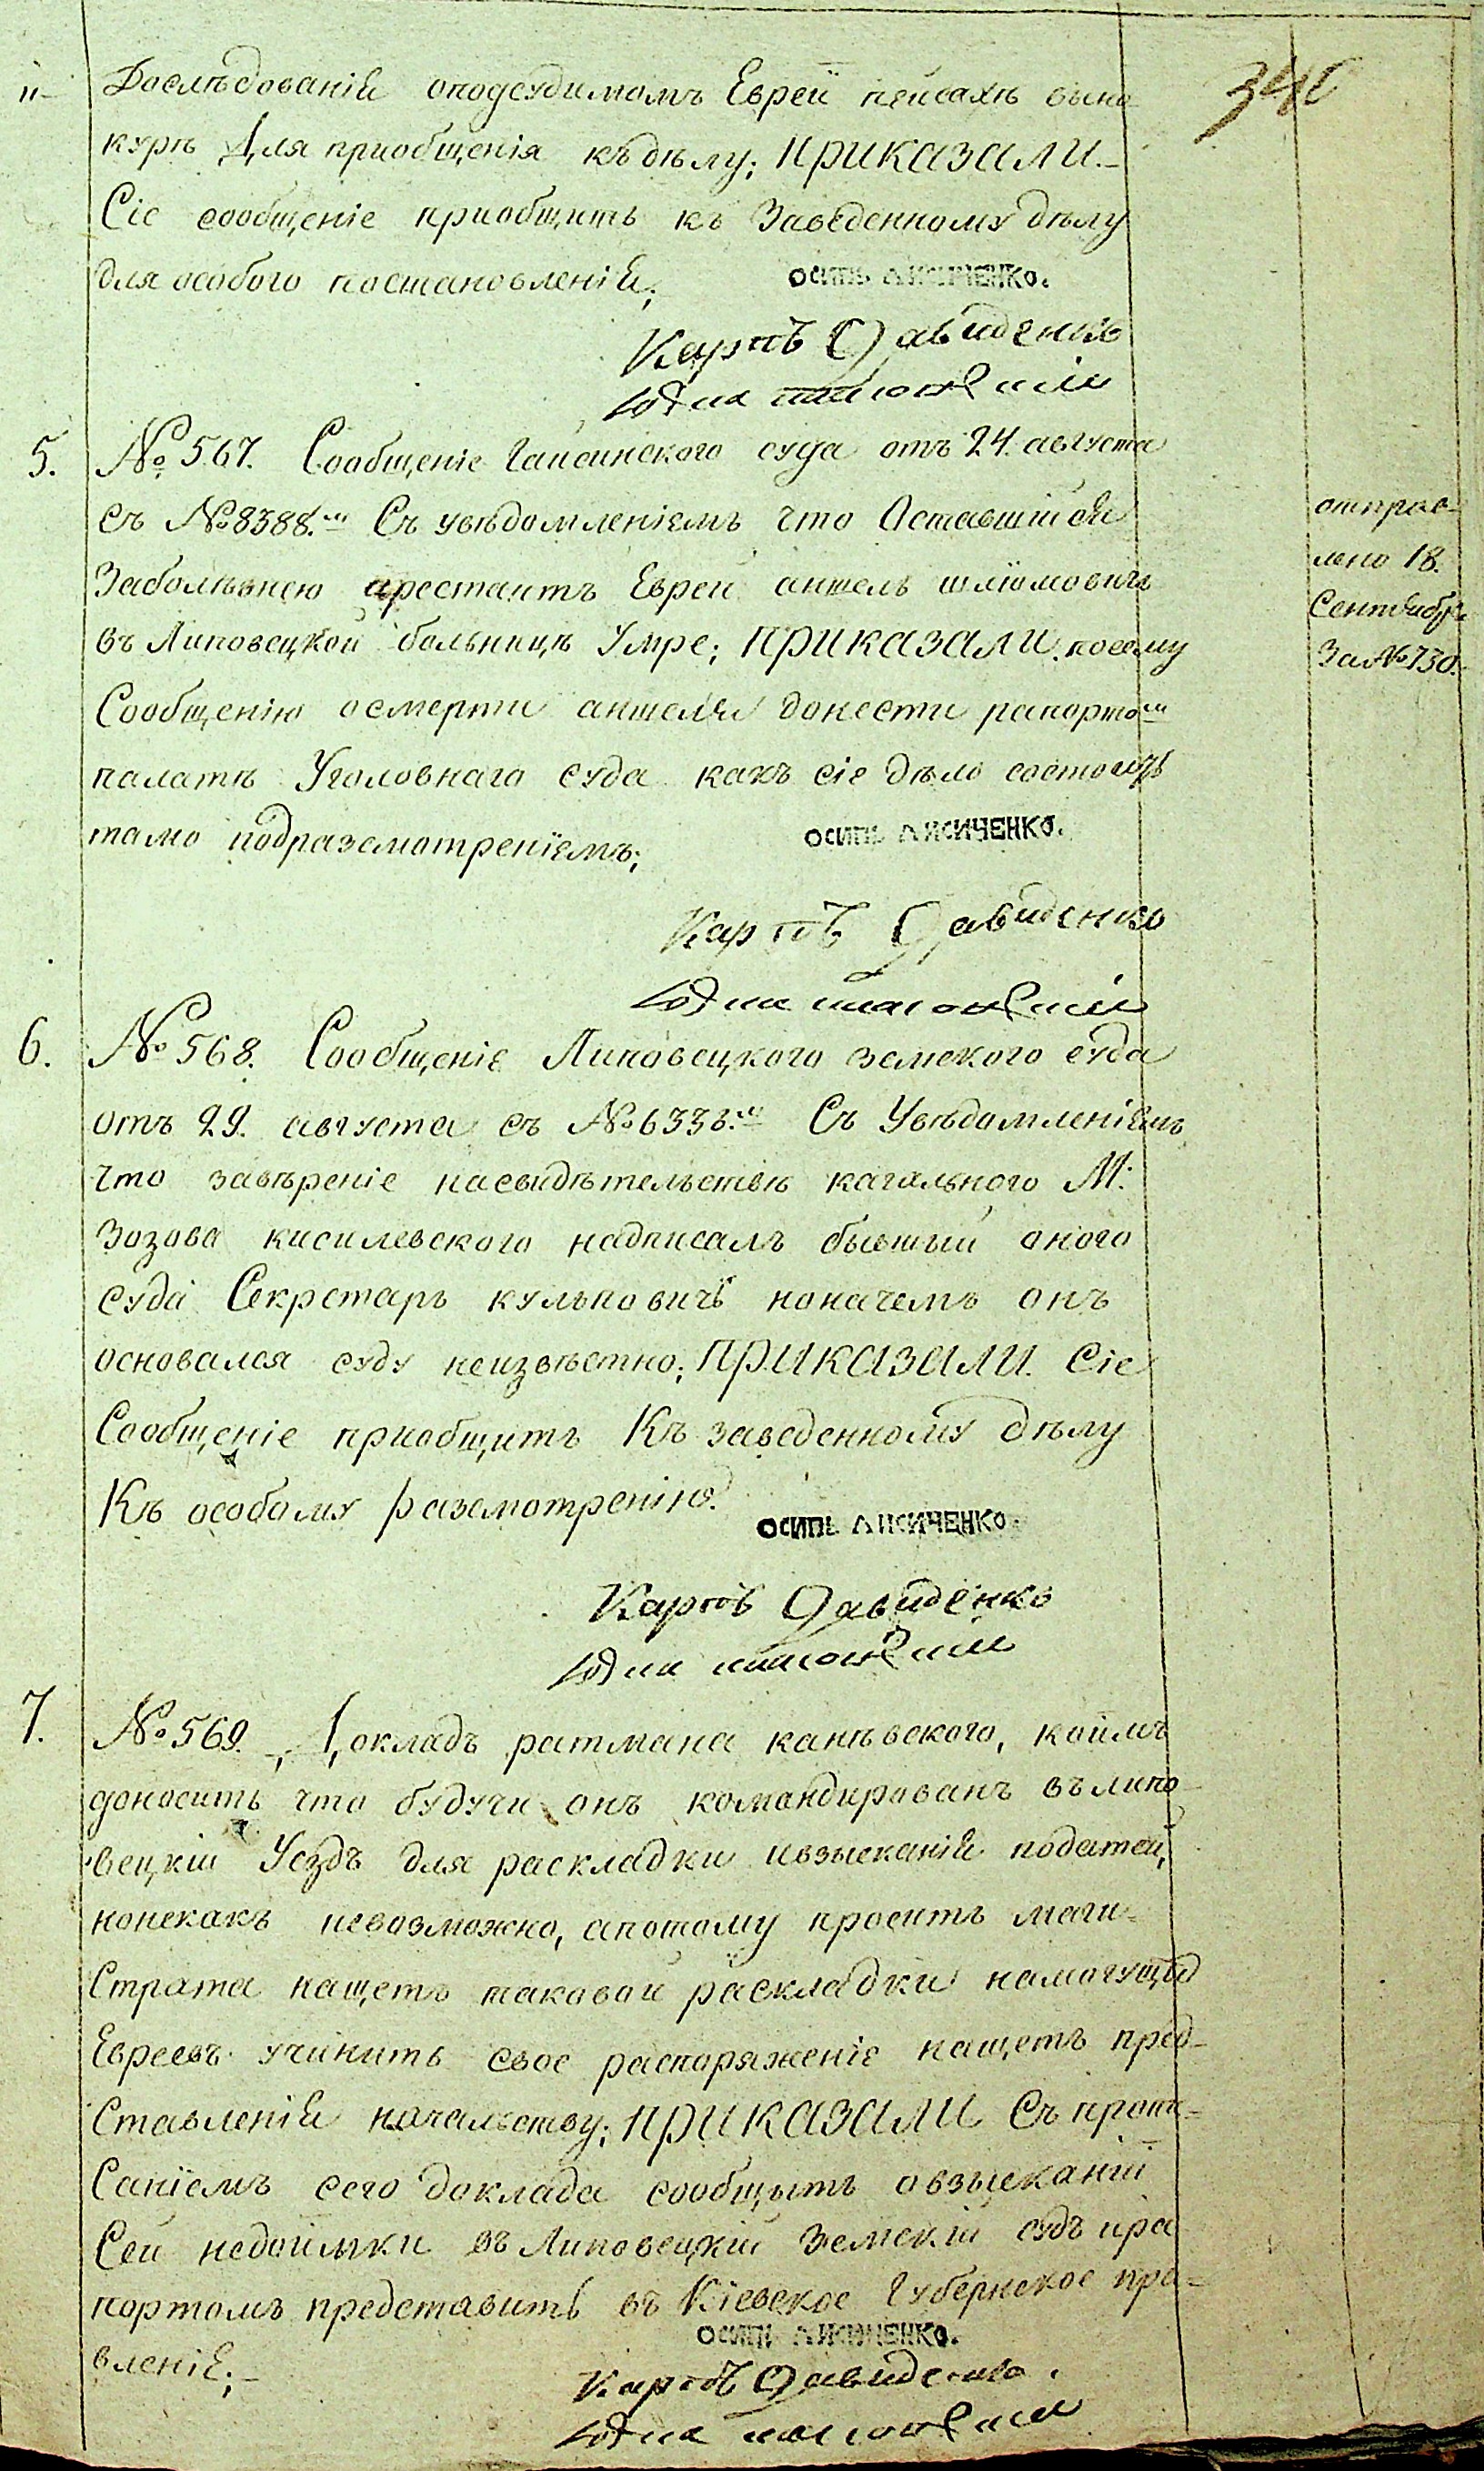 340
Дослѣдованія оподсудимомъ Еврей пейсахѣ выно
курѣ Для приобщенія къ дѣлу; ПРИКАЗАЛИ.
Сіе сообщеніе приобщить къ Заведенному дѣлу
для особого постановленія;
ОСИПЬ ЛИСИЧЕНКО.
Карпъ Давиденко
5. № 567. Сообщеніе Гайсинского суда отъ 24. августа
съ № 8388.мъ Съ увѣдомленіемъ что Оставшійся
Заболѣзнею арестантъ Еврей аншель шлиомовичъ
въ Липовецкой больницѣ Умре; ПРИКАЗАЛИ. посему
Сообщенію осмерти аншеля донести рапортомъ
палатѣ Уголовнаго суда какъ сіе дѣло состоитъ
тамо подразсмотреніемъ;
ОСИПЬ ЛИСИЧЕНКО.
Карпъ Давиденко
отправ-
лено 18.
Сентября
За № 730.
6. № 568. Сообщеніе Липовецкого земского суда
отъ 29. августа съ № 6338.мъ Съ Увѣдомленіемъ
что завѣреніе насвидѣтельствѣ кагального М:
Зозова кисилевского надписалъ бывшый оного
суда Секретарь кульповичъ ноначемъ онъ
основался суду неизвѣстно; ПРИКАЗАЛИ. Сіе
Сообщеніе приобщить Къ заведенному дѣлу
Къ особому разсмотренію.
ОСИПЬ ЛИСИЧЕНКО.
Карпъ Давиденко
7. № 569. Докладъ ратмана канѣвского, коимъ
доноситъ что будучи онъ командированъ въ липо
вецкій Уездъ для раскладки ивзысканія податей,
нонекакъ невозможно, апотому проситъ маги-
Страта нащетъ таковой раскладки намогущыхъ
Евреевъ учинить свое распоряженіе нащетъ пред-
Ставленія начальству; ПРИКАЗАЛИ Съ пропи-
Саніемъ сего доклада сообщыть овзысканіи
Сей недоимки въ Липовецкій Земскій судъ ира
портомъ представить въ Кіевское Губернское пра-
вленіе;
ОСИПЬ ЛИСИЧЕНКО.
Карпъ Давиденко.